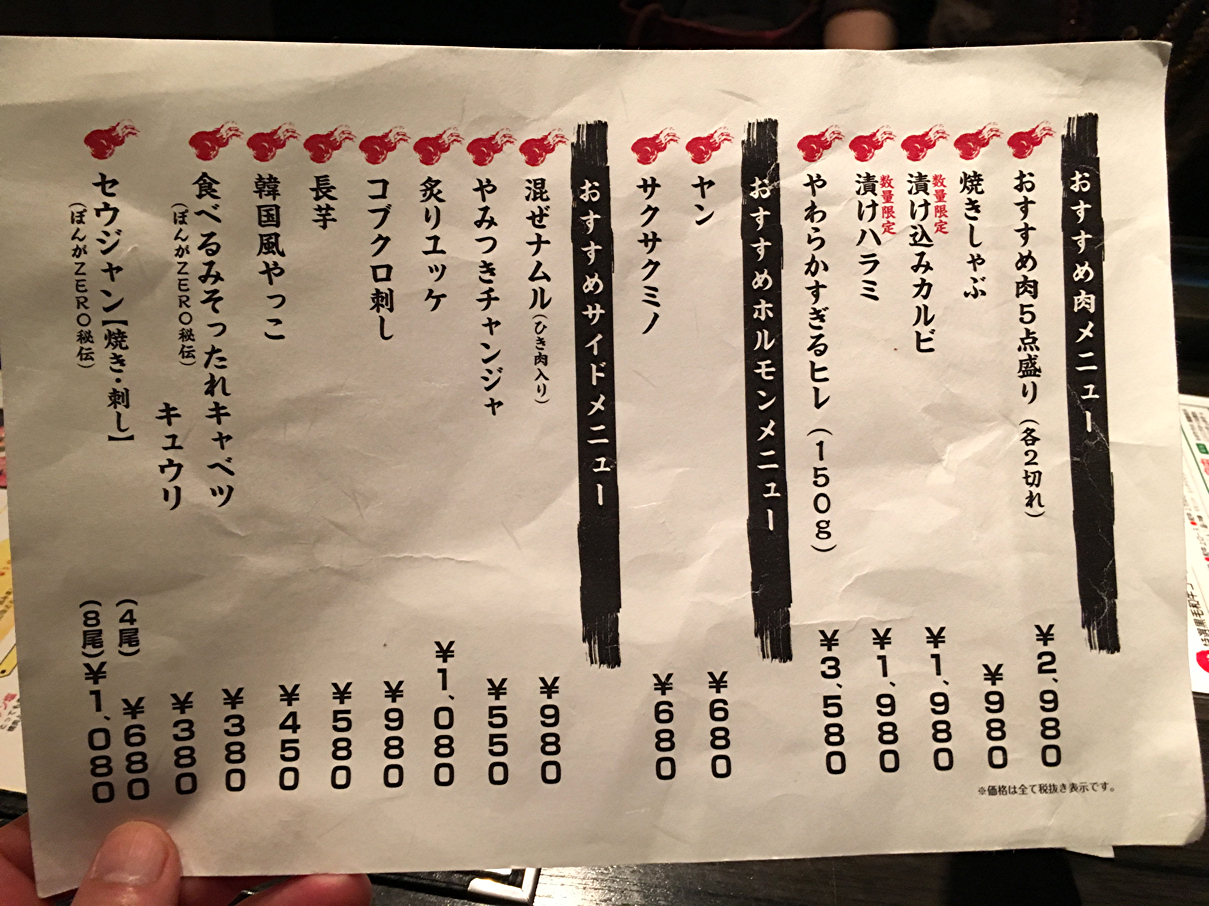 おすすめ肉メニュー
おすすめ肉5点盛り(各2切れ) ¥2,980
焼きしゃぶ ¥980
数量限定
漬け込みカルビ ¥1,980
数量限定
漬けハラミ ¥1,980
やわらかすぎるヒレ(150g) ¥3,580
おすすめホルモンメニュー
ヤン ¥680
サクサクミノ ¥680
おすすめサイドメニュー
混ぜナムル(ひき肉入り) ¥980
やみつきチャンジャ ¥550
炙りユッケ ¥1,080
コブクロ刺し ¥980
長芋 ¥580
韓国風やっこ ¥450
食べるみそったれキャベツ ¥380
(ぽんがZERO秘伝)
キュウリ ¥380
セウジャン【焼き・刺し】 (4尾) ¥680
(ぽんがZERO秘伝) (8尾) ¥1,080
※価格は全て税抜き表示です。